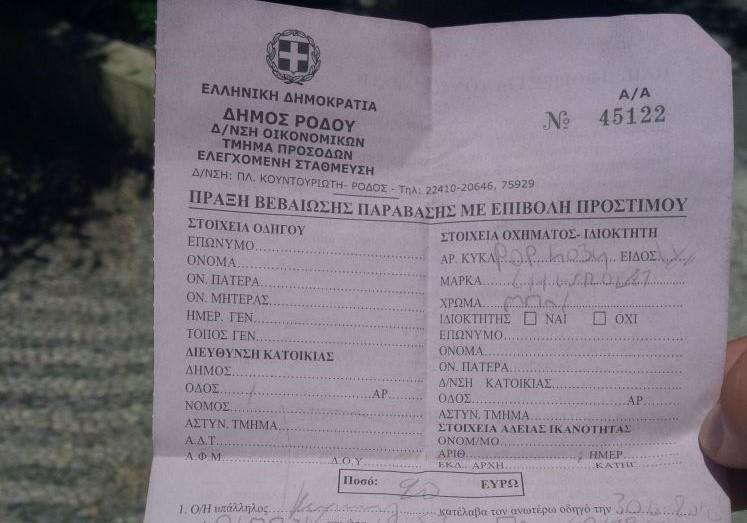 ΕΛΛΗΝΙΚΗ ΔΗΜΟΚΡΑΤΙΑ
ΔΗΜΟΣ ΡΟΔΟΥ
Δ/ΝΣΗ ΟΙΚΟΝΟΜΙΚΩΝ
ΤΜΗΜΑ ΠΡΟΣΟΔΩΝ
ΕΛΕΓΧΟΜΕΝΗ ΣΤΑΘΜΕΥΣΗ
Δ/ΝΣΗ: ΠΛ. ΚΟΥΝΤΟΥΡΙΩΤΗ- ΡΟΔΟΣ - Τηλ: 22410-20646, 75929
Α/Α
№ 45122
ΠΡΑΞΗ ΒΕΒΑΙΩΣΗΣ ΠΑΡΑΒΑΣΗΣ ΜΕ ΕΠΙΒΟΛΗ ΠΡΟΣΤΙΜΟΥ
ΣΤΟΙΧΕΙΑ ΟΔΗΓΟΥ
ΕΠΩΝΥΜΟ
ΟΝΟΜΑ
ΟΝ. ΠΑΤΕΡΑ
ΟΝ. ΜΗΤΕΡΑΣ
ΗΜΕΡ. ΓΕΝ
ΤΟΠΟΣ ΓΕΝ.
ΔΙΕΥΘΥΝΣΗ ΚΑΤΟΙΚΙΑΣ
ΔΗΜΟΣ
ΟΔΟΣ ΑΡ.
ΝΟΜΟΣ
ΑΣΤΥΝ. ΤΜΗΜΑ
Α.Δ.Τ
Α.Φ.Μ Δ.Ο.Υ
ΣΤΟΙΧΕΙΑ ΟΧΗΜΑΤΟΣ- ΙΔΙΟΚΤΗΤΗ
ΑΡ. ΚΥΚΛ. ΕΙΔΟΣ
ΜΑΡΚΑ
ΧΡΩΜΑ
ΙΔΙΟΚΤΗΤΗΣ ΝΑΙ ΟΧΙ
ΕΠΩΝΥΜΟ
ΟΝΟΜΑ
ΟΝ. ΠΑΤΕΡΑ
Δ/ΝΣΗ ΚΑΤΟΙΚΙΑΣ
ΟΔΟΣ ΑΡ.
ΑΣΤΥΝ. ΤΜΗΜΑ
ΣΤΟΙΧΕΙΑ ΑΔΕΙΑΣ ΙΚΑΝΟΤΗΤΑΣ
ΟΝΟΜ/ΜΟ
ΑΡΙΘ ΗΜΕΡ.
ΕΚΔ. ΑΡΧΗ ΚΑΤΗΓ
Ποσό: ΕΥΡΩ
1. Ο/Η υπάλληλος κατέλαβα τον ανωτέρω οδηγό την